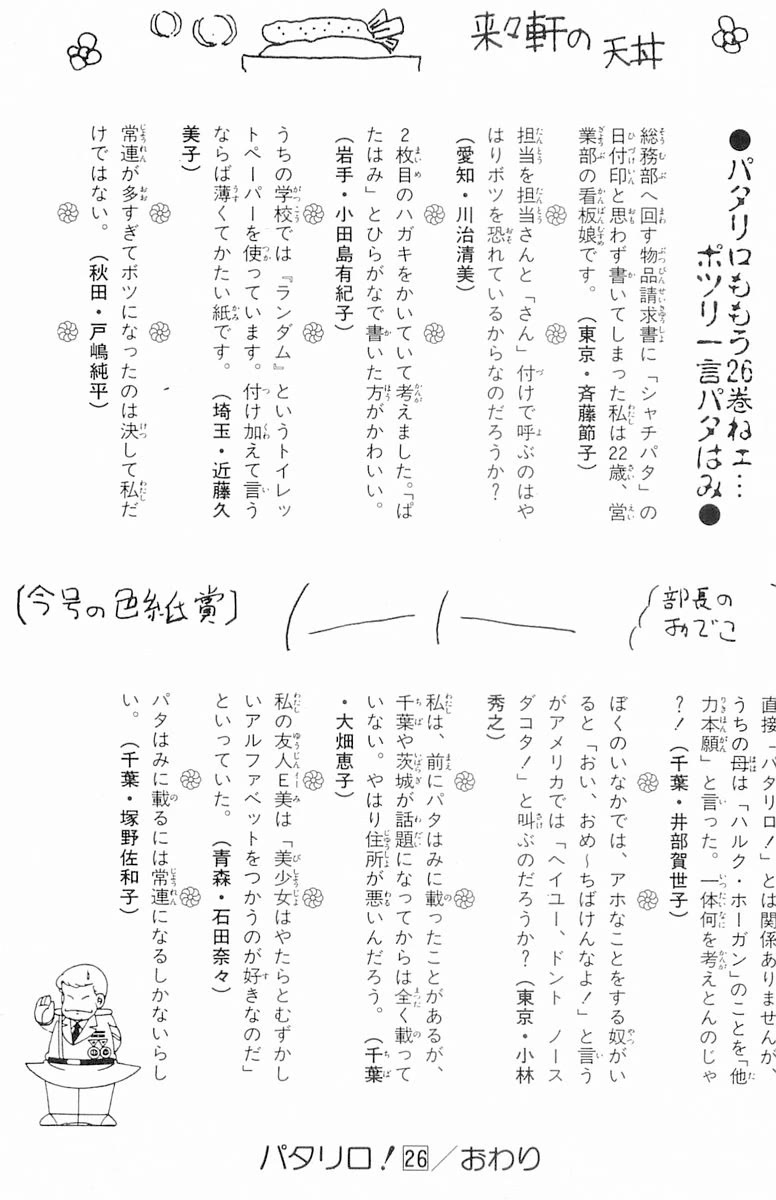 来々軒の
天丼
●パタリロももう26巻ねェ…
ポツリ一言パタはみ●
総務部へ回す物品請求書に「シャチパタ」の
日付印と思わず書いてしまった私は22歳、営
業部の看板娘です。（東京・斉藤節子）
担当を担当さんと「さん」付けで呼ぶのはや
はりボツを恐れているからなのだろうか？
（愛知・川治清美）
2枚目のハガキをかいていて考えました。「ぱ
たはみ」とひらがなで書いた方がかわいい。
（岩手・小田島有紀子）
うちの学校では『ランダム』というトイレッ
トペーパーを使っています。付け加えて言う
ならば薄くてかたい紙です。（埼玉・近藤久
美子）
常連が多すぎてボツになったのは決して私だ
けではない。（秋田・戸嶋純平）
部長の
おでこ
〔今号の色紙賞〕
直接「パタリロ！」とは関係ありませんが、
うちの母は「ハルク・ホーガン」のことを「他
力本願」と言った。一体何を考えとんのじゃ
？！（千葉・井部賀世子）
ぼくのいなかでは、アホなことをする奴がい
ると「おい、おめ〜ちばけんなよ！」と言う
がアメリカでは「ヘイユー、ドント ノース
ダコタ！」と叫ぶのだろうか？（東京・小林
秀之）
私は、前にパタはみに載ったことがあるが、
千葉や茨城が話題になってからは全く載って
いない。やはり住所が悪いんだろう。（千葉
・大畑恵子）
私の友人E美は「美少女はやたらとむずかし
いアルファベットをつかうのが好きなのだ」
といっていた。（青森・石田奈々）
パタはみに載るには常連になるしかないらし
い。（千葉・塚野佐和子）
パタリロ！26／おわり